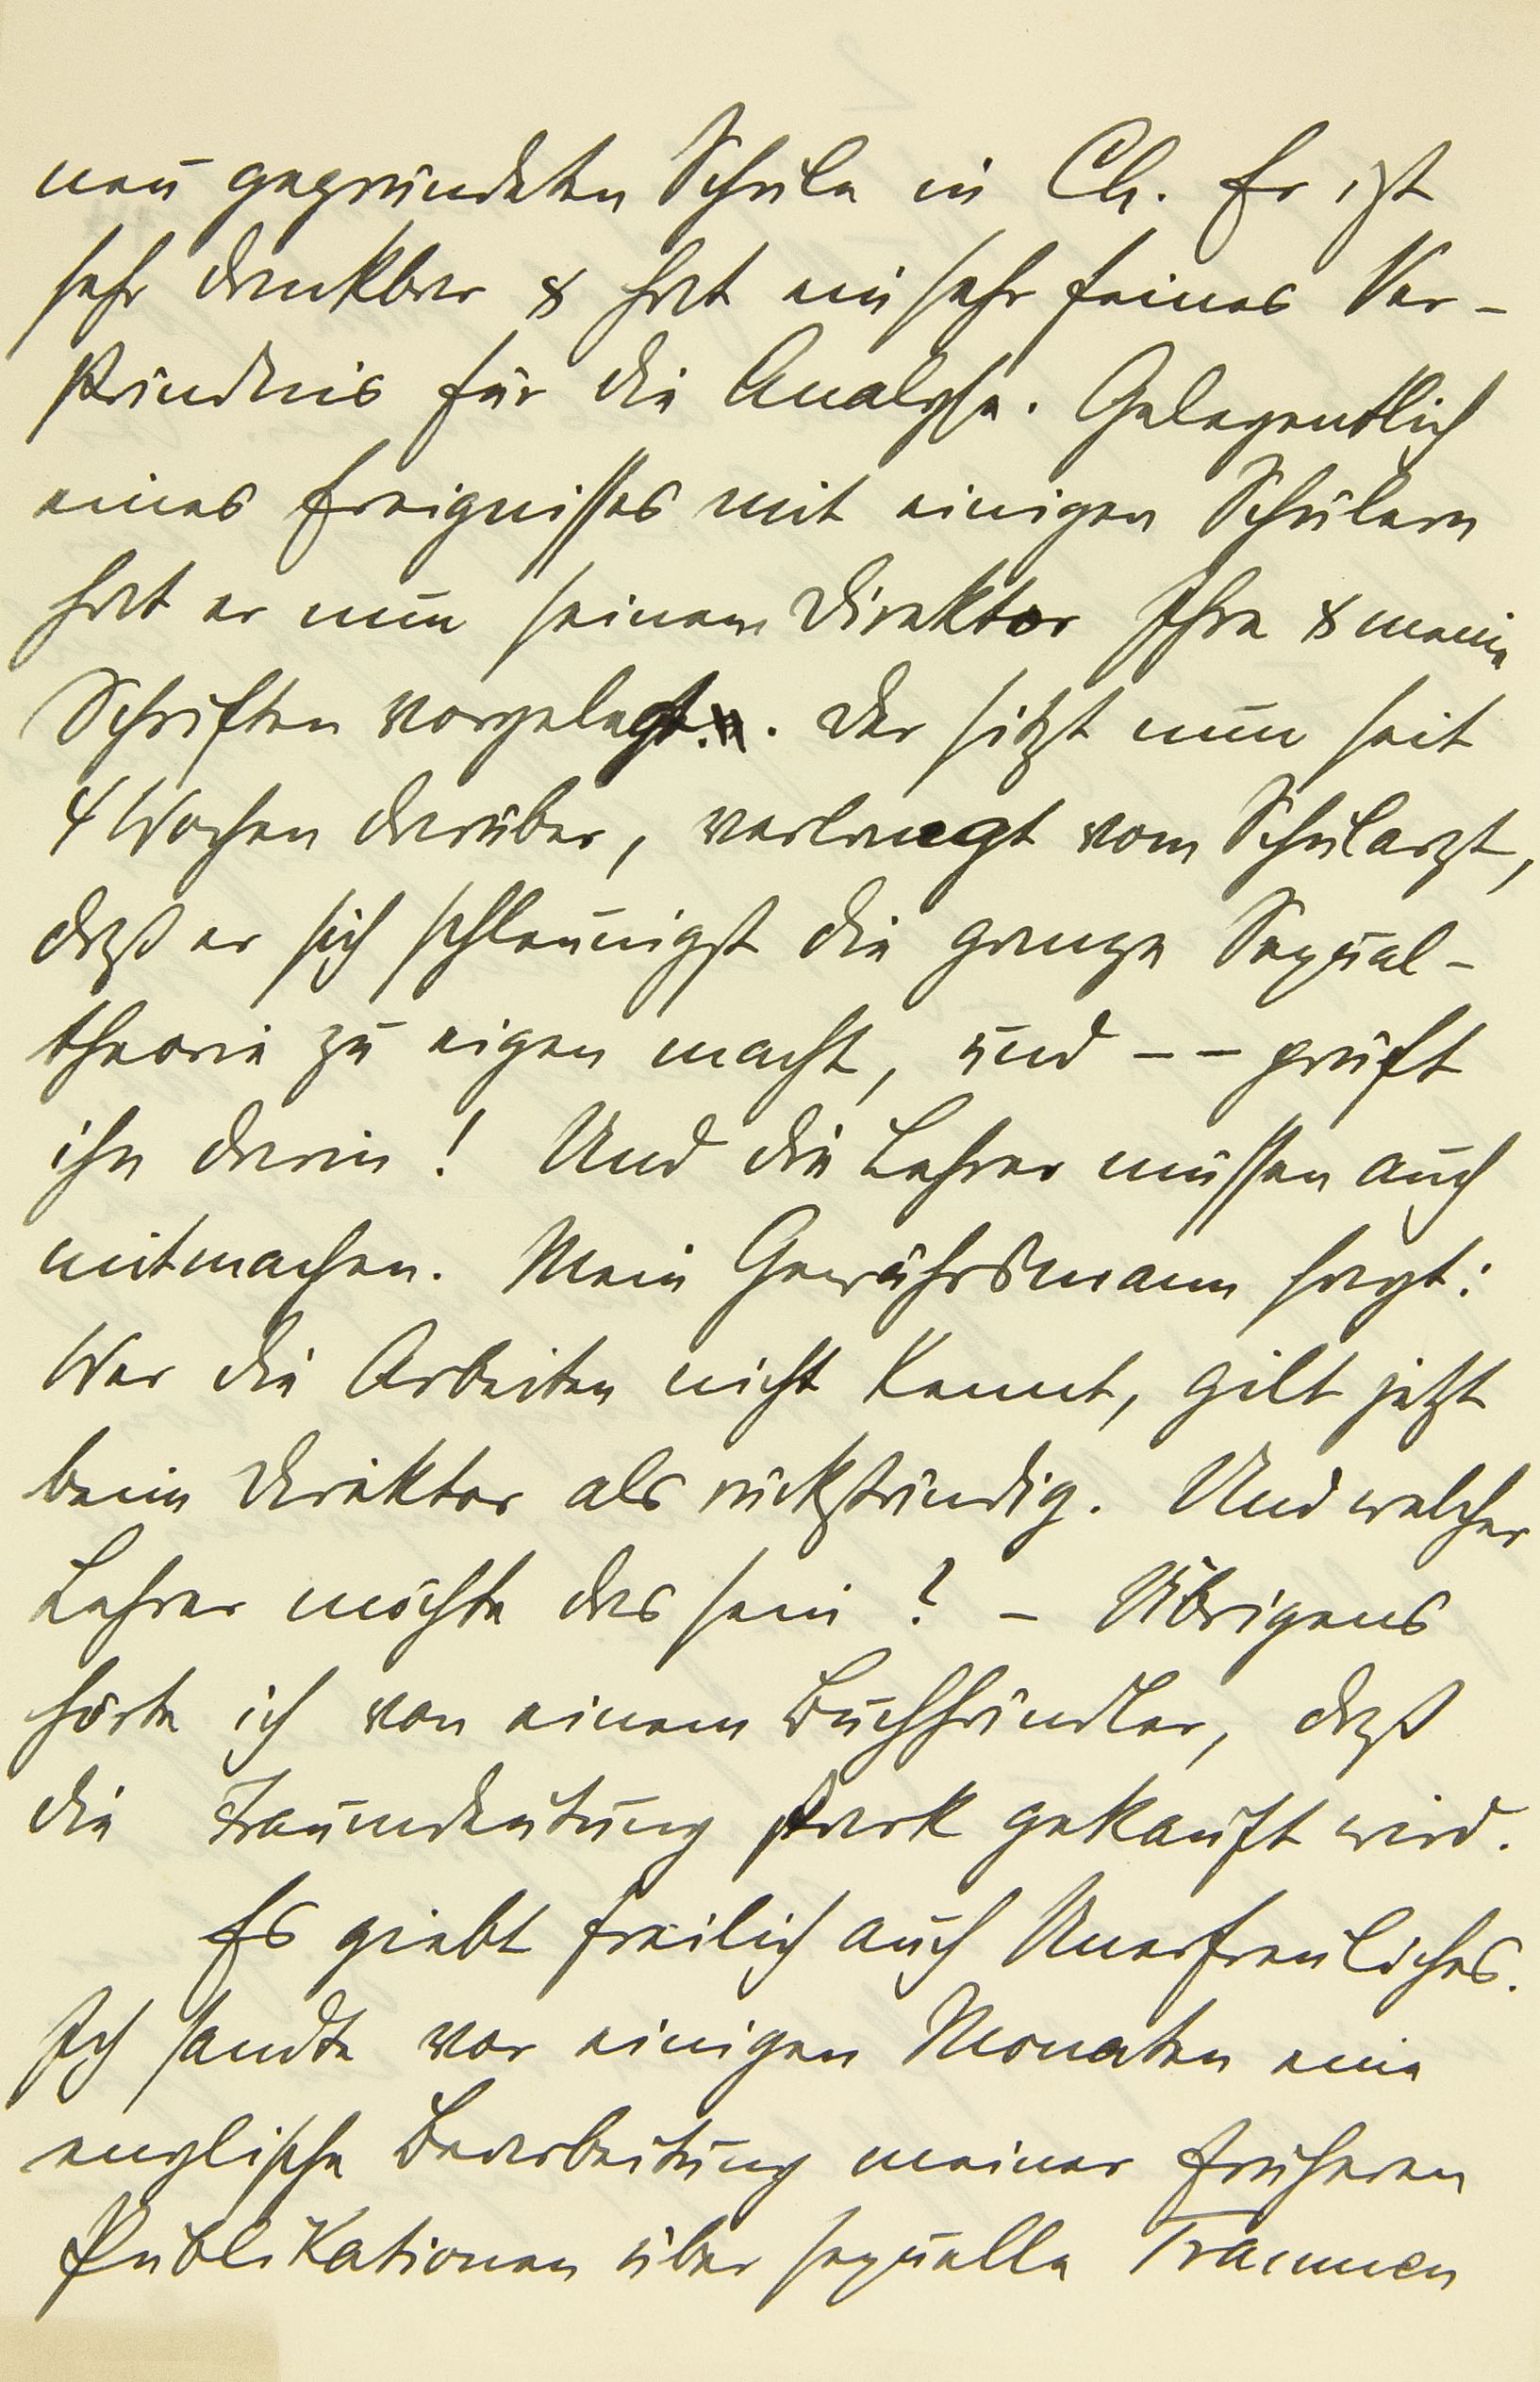 neu gegründeten Schule in Ch. Er ist
sehr dankbar & hat ein sehr feines Ver-
ständnis für die Analyse. Gelegentlich
eines Ereignisses mit einigen Schülern
hat er nun seinem Direktor Ihre & meine
Schriften vorgelegt. Der sitzt nun seit
4 Wochen darüber, verlangt vom Schularzt,
daß er sich schleunigst die ganze Sexual-
theorie zu eigen macht, und – – prüft
ihn darin! Und die Lehrer müssen auch
mitmachen. Mein Gewährsmann sagt:
Wer die Arbeiten nicht kennt, gilt jetzt
beim Direktor als rückständig. Und welcher
Lehrer möchte das sein? – Übrigens
hörte ich von einem Buchhändler, daß
die Traumdeutung stark gekauft wird.
Es giebt freilich auch Unerfreuliches.
Ich sandte vor einigen Monaten eine
englische Bearbeitung meiner früheren
Publikationen über sexuelle Traumen